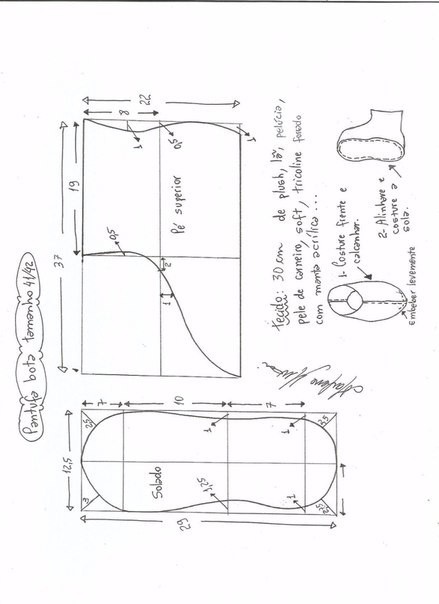 Pantufa bota tamanho 41/42
37
19
22
8
1
0,5
1
Pé superior
0,5
2
1
tecido: 30 cm de plush, lã, pelúcia,
pele de carneiro, soft, tricoline forrado
com manta acrílica...
1- Costure frente e
calcanhar.
2- Alinhave e
costure a
sola.
Embeber levemente
12,5
7
10
7
2,5
3
1
1
3,5
Solado
1,25
1
29